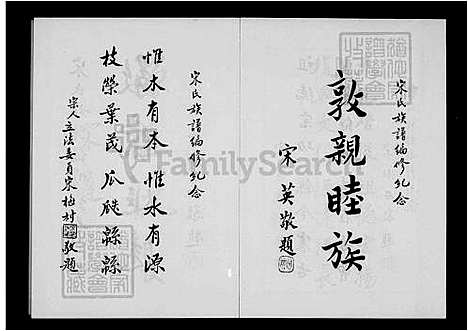 宋氏族譜編修紀念
敦親睦族
宋英敬題
宋氏族譜編修紀念
惟木有本惟水有源
枝榮葉茂瓜瓞緜緜
宗人立法委員宋梅村敬題
FamilySearch